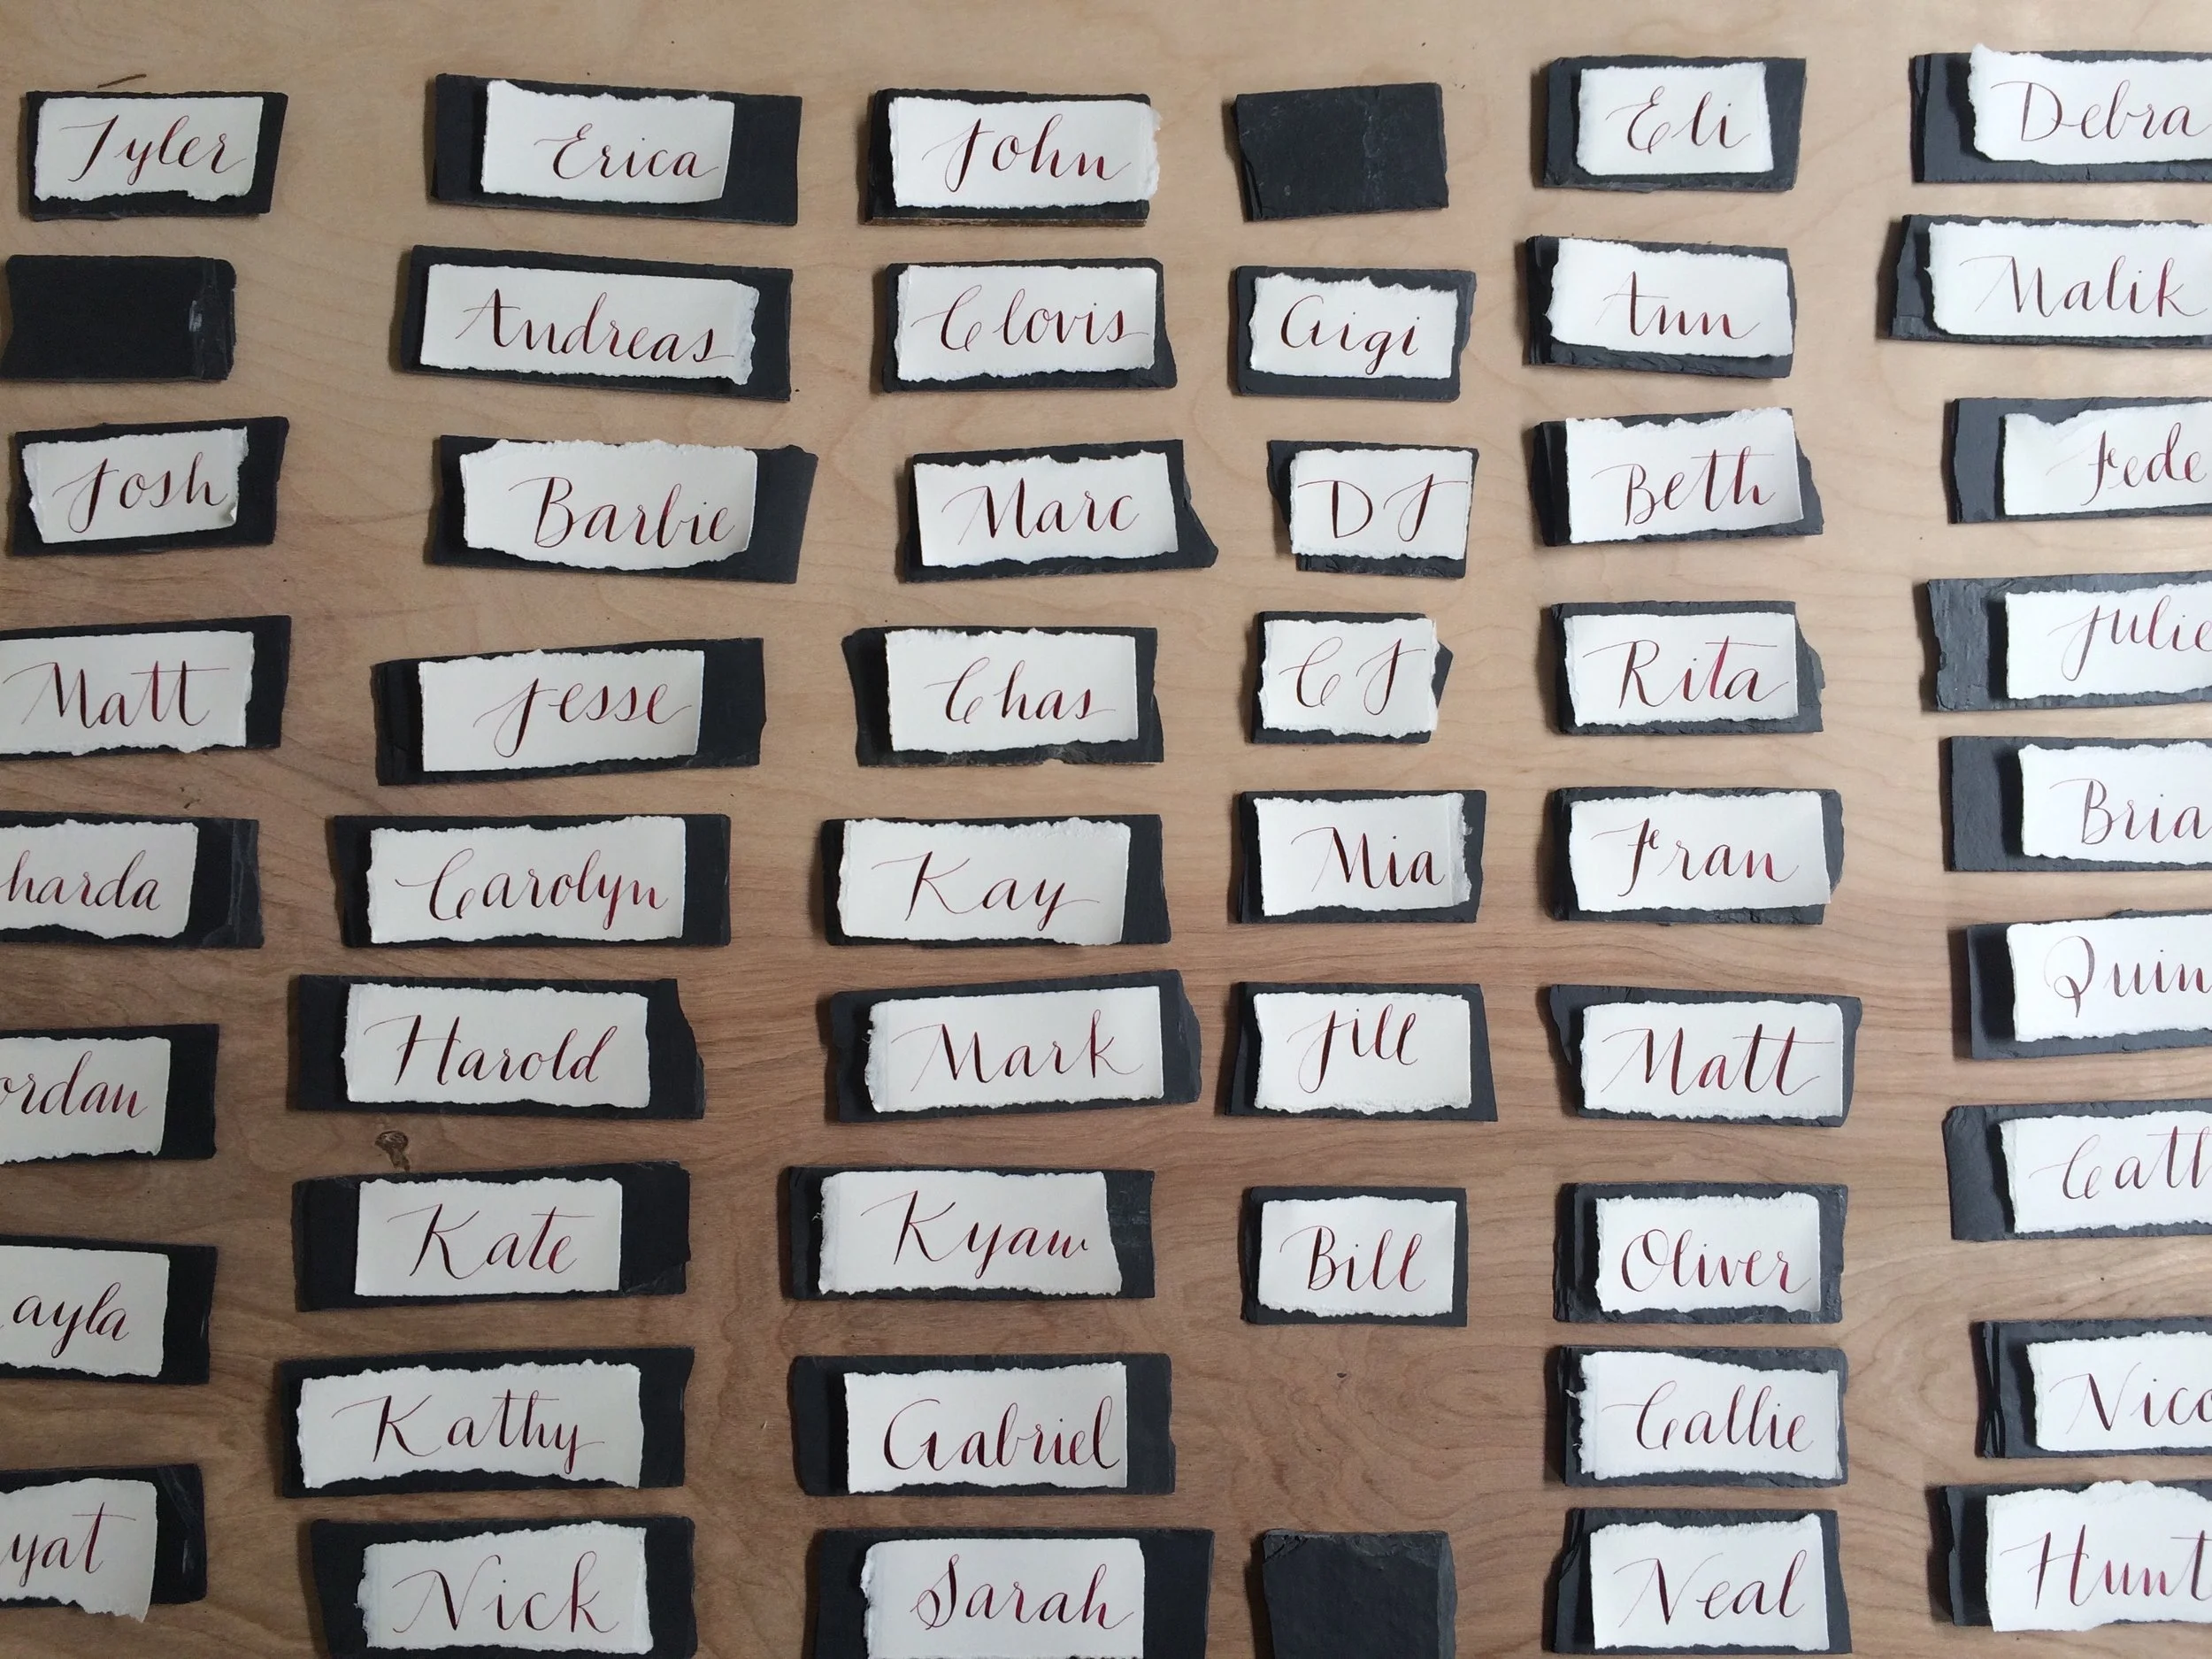 Tyler
Erica
John
Eli
Debra
Andreas
Clovis
Gigi
Ann
Malik
Josh
Barbie
Marc
DJ
Beth
Fede
Matt
Jesse
Chas
CJ
Rita
Julie
harda
Carolyn
Kay
Mia
Fran
Bria
ordan
Harold
Mark
Jill
Matt
Quin
ayla
Kate
Kyaw
Bill
Oliver
Cath
Kathy
Gabriel
Callie
Nico
yat
Nick
Sarah
Neal
Hunt